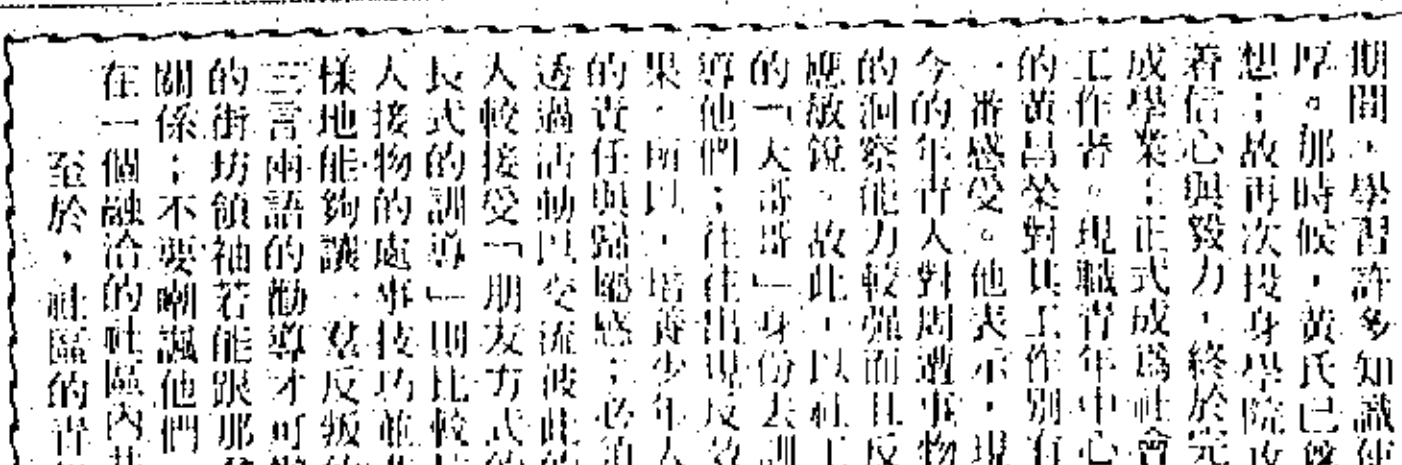 期間，學習許多知識使
厚。那時候，黃氏已發
想；故再次投身學院攻
着信心與毅力，終於完
成學業；正式成爲社會
工作者。現職青年中心
的黃昌榮對其工作別有
一番感受。他表示，現
今的年青人對周遭事物
的洞察能力較強而且反
應敏銳。故此，以社工
的「大哥哥」身份去訓
導他們；往往出現反效
果。所以，培養少年人
的責任與歸屬感；必須
透過活動以交流彼此的
人較接受「朋友方式的
長式的訓導」則比較
人接物的處事技巧並非
樣地能夠讓一羣反叛的
三言兩語的勸導才可
的街坊領袖若能跟那
關係；不要嘲諷他們
在一個融洽的社區內共
至於，社區的青